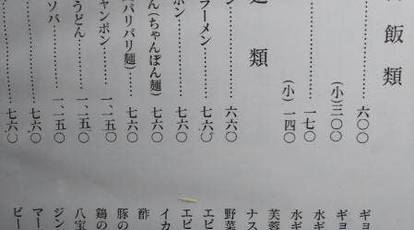 飯類
……六〇〇
(小)三〇〇
……一七〇
(小)一四〇
類
……六六〇
ラーメン……七六〇
ポン……七六〇
ん(ちゃんぽん麺)七六〇
(パリパリ麺)……七六〇
ャンポン……一、二五〇
うどん……一、二五〇
ソバ……一、二五〇
……七六〇
……七六〇
ギョ
ギョ
水ギ
水ギ
芙蓉
ナス
野菜
エビ
エビ
イカ
酢
豚の
鶏の
八宝
ジン
マー
ビー